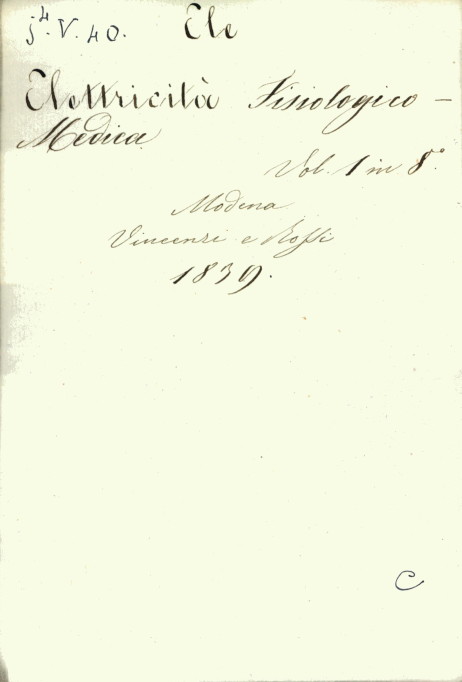 j⁴. V. 40. Ele
Elettricità Fisiologico –
Medica
Vol. 1 in 8.°
Modena
Vincenzi e Rossi
1839.
C